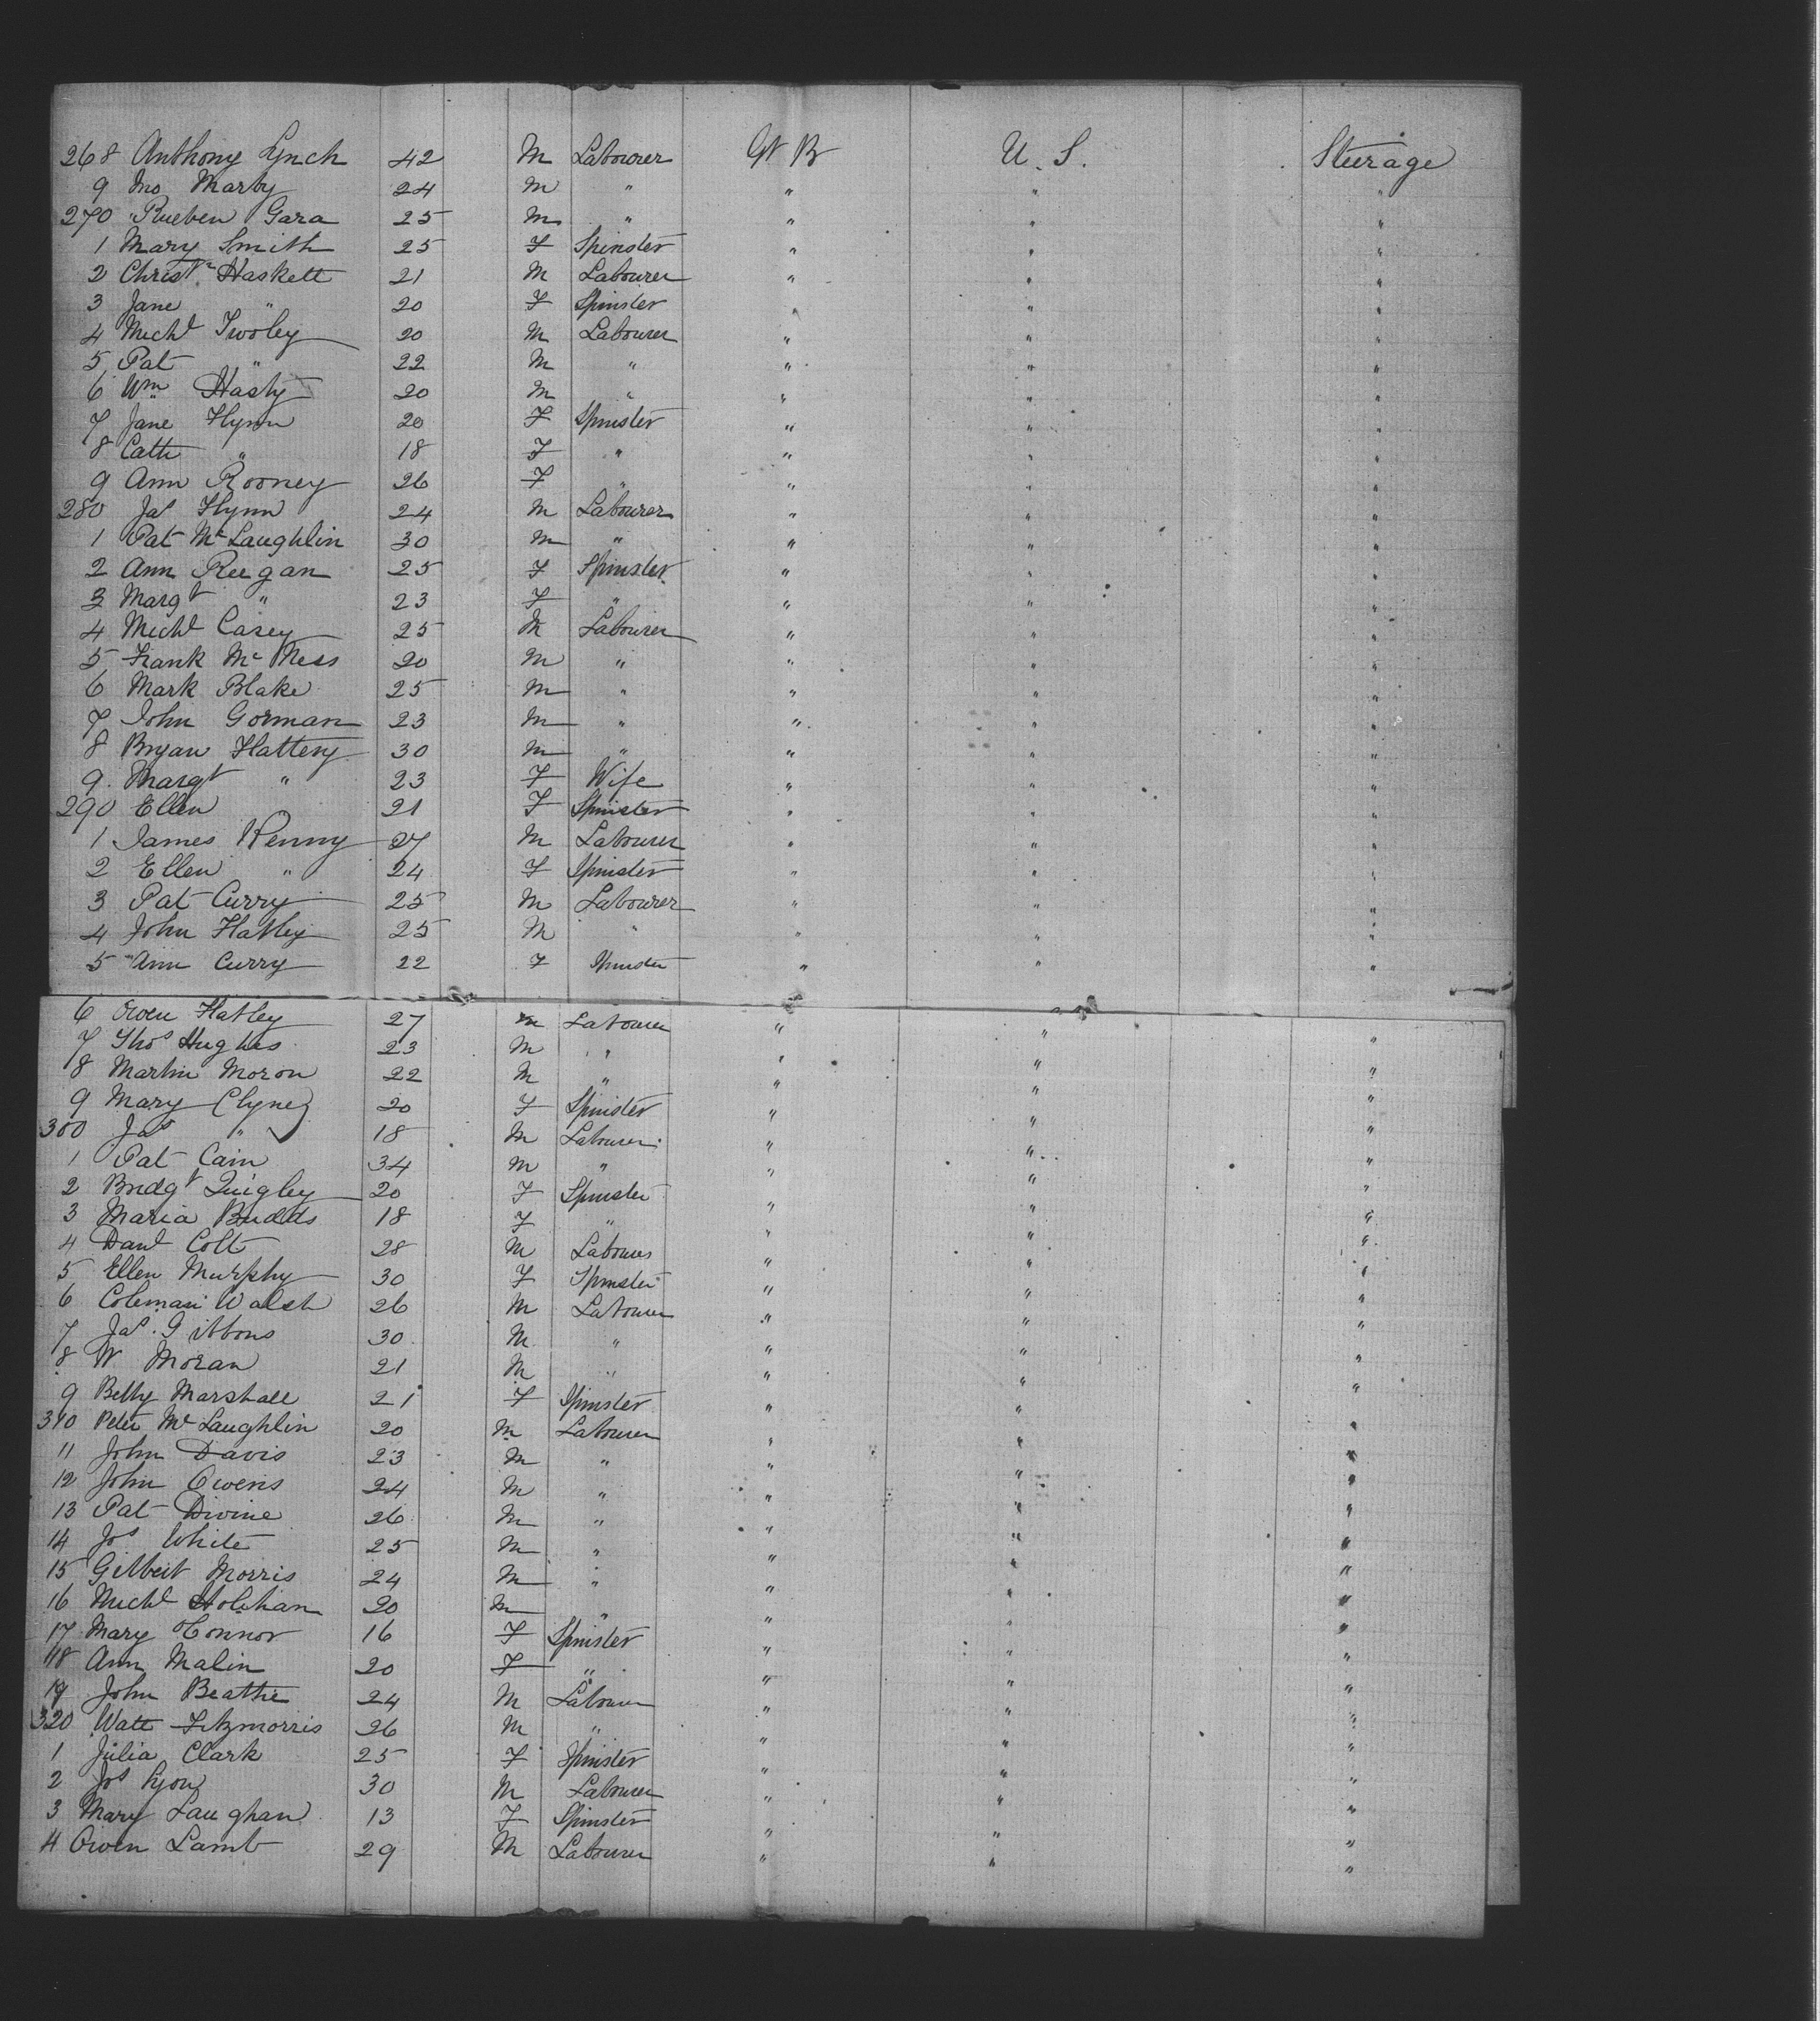 268 Anthony Lynch 42 M Labourer Gt B U.S. Steerage
9 Jno Marby 24 M " " " "
270 Rueben Gara 25 M " " " "
1 Mary Smith 25 F Spinster " " "
2 Christr Haskett 21 M Labourer " " "
3 Jane " 20 F Spinster " " "
4 Michl Twoley 20 M Labourer " " "
5 Pat " 22 M " " " "
6 Wm Hasty 20 M " " " "
7 Jane Flynn 20 F Spinster " " "
8 Cath " 18 F " " " "
9 Ann Rooney 26 F " " " "
280 Jas Flynn 24 M Labourer " " "
1 Pat McLaughlin 30 M " " " "
2 Ann Reegan 25 F Spinster " " "
3 Margt " 23 F " " " "
4 Michl Casey 25 M Labourer " " "
5 Frank McNess 20 M " " " "
6 Mark Blake 25 M " " " "
7 John Gorman 23 M " " " "
8 Bryan Flattery 30 M " " " "
9 Margt " 23 F Wife " " "
290 Ellen 21 F Spinster " " "
1 James Kenny 27 M Labourer " " "
2 Ellen " 24 F Spinster " " "
3 Pat Curry 25 M Labourer " " "
4 John Flatley 25 M " " " "
5 Ann Curry 22 F Spinster " " "
6 Owen Flatley 27 M Labourer " " "
7 Thos Hughes 23 M " " " "
8 Martin Moron 22 M " " " "
9 Mary Clynez 20 F Spinster " " "
300 Jas " 18 M Labourer " " "
1 Pat Cain 34 M " " " "
2 Bridgt Quigley 20 F Spinster " " "
3 Maria Budds 18 F " " " "
4 Danl Colt 28 M Labourer " " "
5 Ellen Murphy 30 F Spinster " " "
6 Coleman Walsh 26 M Labourer " " "
7 Jas. Gibbons 30 M " " " "
8 W Moran 21 M " " " "
9 Betty Marshall 21 F Spinster " " "
310 Peter McLaughlin 20 M Labourer " " "
11 John Davis 23 M " " " "
12 John Owens 24 M " " " "
13 Pat Divine 26 M " " " "
14 Jos White 25 M " " " "
15 Gilbert Morris 24 M " " " "
16 Michl Holehan 20 M " " " "
17 Mary OConnor 16 F Spinster " " "
18 Ann Malin 20 F " " " "
19 John Beattie 24 M Labourer " " "
320 Watt Fitzmorris 26 M " " " "
1 Julia Clark 25 F Spinster " " "
2 Jos Lyon 30 M Labourer " " "
3 Mary Laughan 13 F Spinster " " "
4 Owen Lamb 29 M Labourer " " "